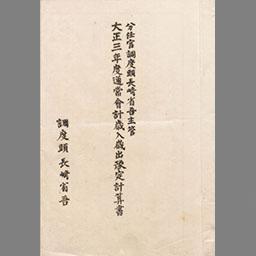 分任官調度頭長崎省吾主管
大正三年度通常會計歳入歳出豫定計算書
調度頭長崎省吾